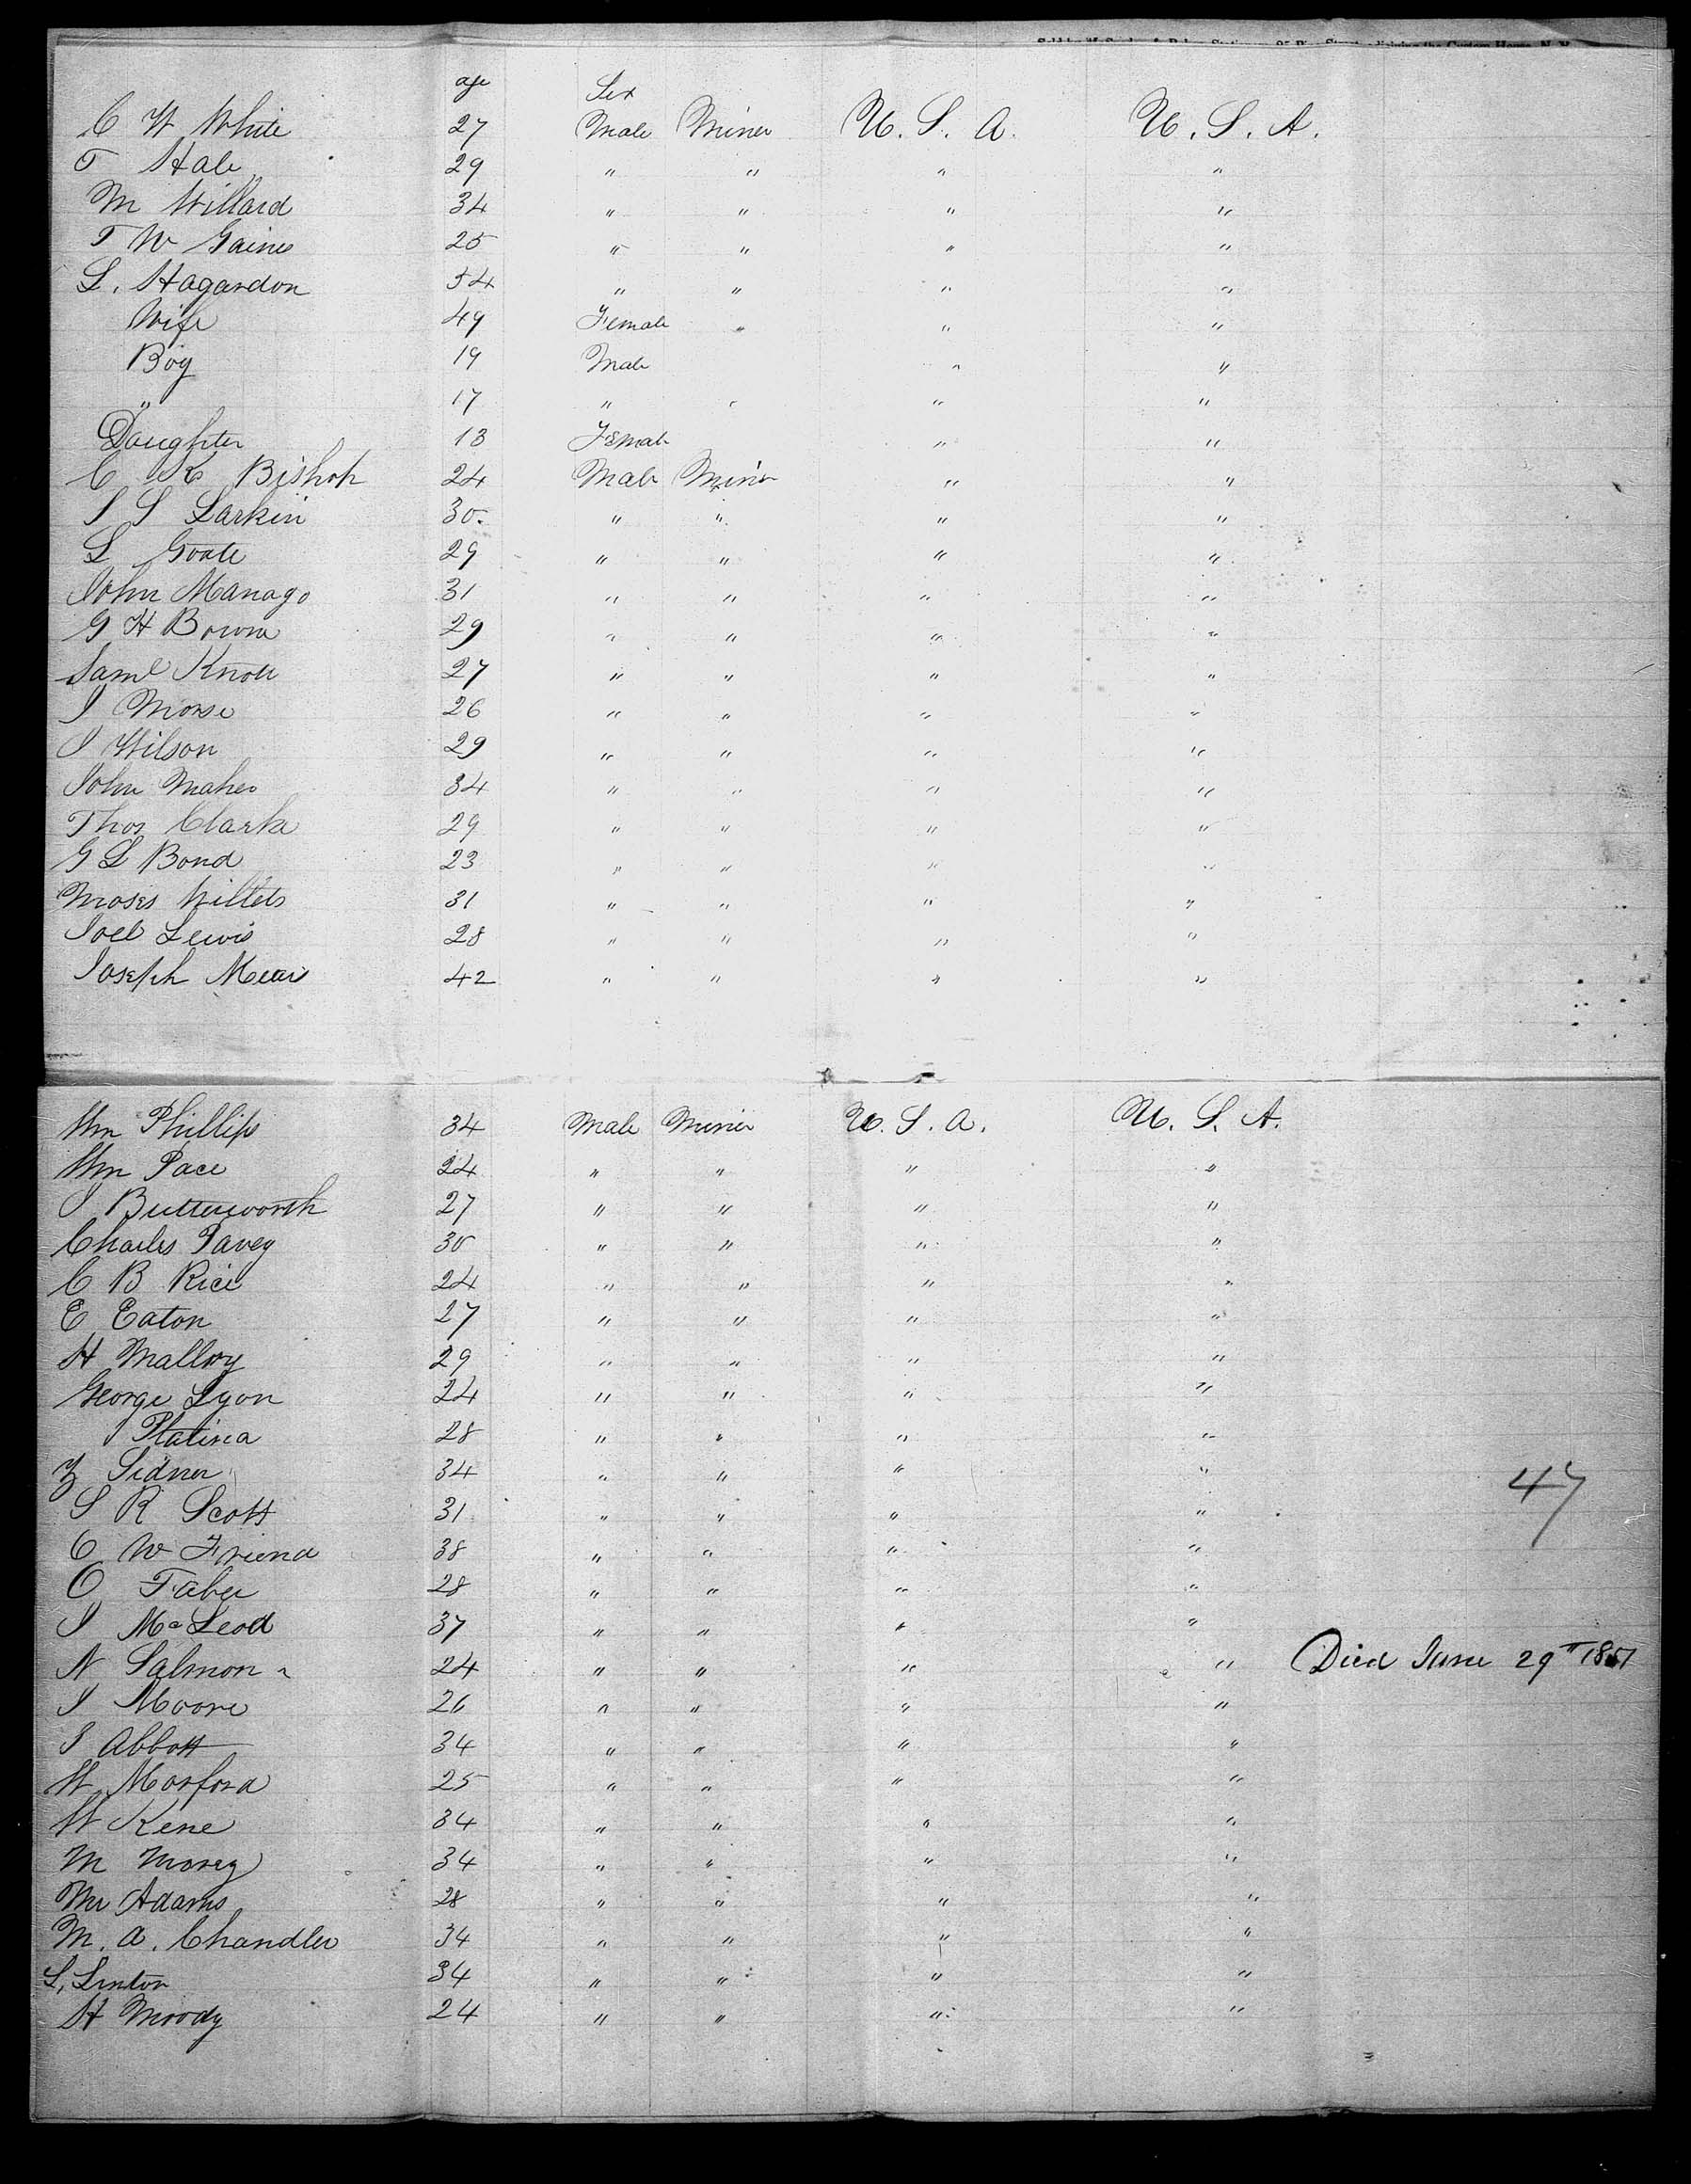 age Sex
C W White 27 Male Miner U. S. A. U. S. A.
T Hale 29 " " " "
M Willard 34 " " " "
T W Gaines 25 " " " "
L. Hagardon 54 " " " "
Wife 49 Female " " "
Boy 19 Male " "
" 17 " " " "
Daughter 13 Female " "
C K Bishop 24 Male Miner " "
S S Larkin 30. " " " "
L 29 " " " "
John Manago 31 " " " "
G H Bowne 29 " " " "
Saml 27 " " " "
J Morse 26 " " " "
J Wilson 29 " " " "
John Maher 34 " " " "
Thos Clarke 29 " " " "
G L Bond 23 " " " "
Moses Willets 31 " " " "
Joel Lewis 28 " " " "
Joseph 42 " " " "
Wm Phillips 34 Male Miner U. S. A. U. S. A.
Wm Pace 24 " " " "
J Butterworth 27 " " " "
Charles Pavey 30 " " " "
C B Rice 24 " " " "
E Eaton 27 " " " "
H Mallory 29 " " " "
George Lyon 24 " " " "
Platina 28 " " " "
Z Sidner 34 " " " "
47
S R Scott 31 " " " "
C W Friend 38 " " " "
O Faber 28 " " " "
J McLeod 37 " " " "
N Salmon 24 " " " " Died June 29th 1851
J Moore 26 " " " "
J Abbott 34 " " " "
W Morford 25 " " " "
W Kene 34 " " " "
M Morey 34 " " " "
Mr Adams 28 " " " "
M. A. Chandler 34 " " " "
L. Linton 34 " " " "
H Moody 24 " " " "